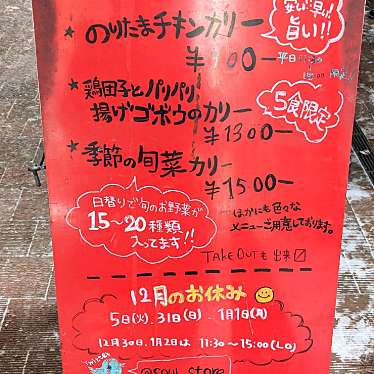 安い!早い!
旨い!!
のりたまチキンカリー
¥900ー
平日11:30
鶏団子とパリパリ
揚げゴボウのカリー
5食限定
¥1300ー
季節の旬菜カリー
¥1500ー
日替りで旬のお野菜が
15〜20種類
入ってます!!
ほかにも色々な
メニューご用意しております。
TAKE OUTも出来〼
12月のお休み
5日(火).31日(日). 1月1日(月)
12月30日.1月2日は 11:30〜15:00(LO)
Twitter
@soul_store